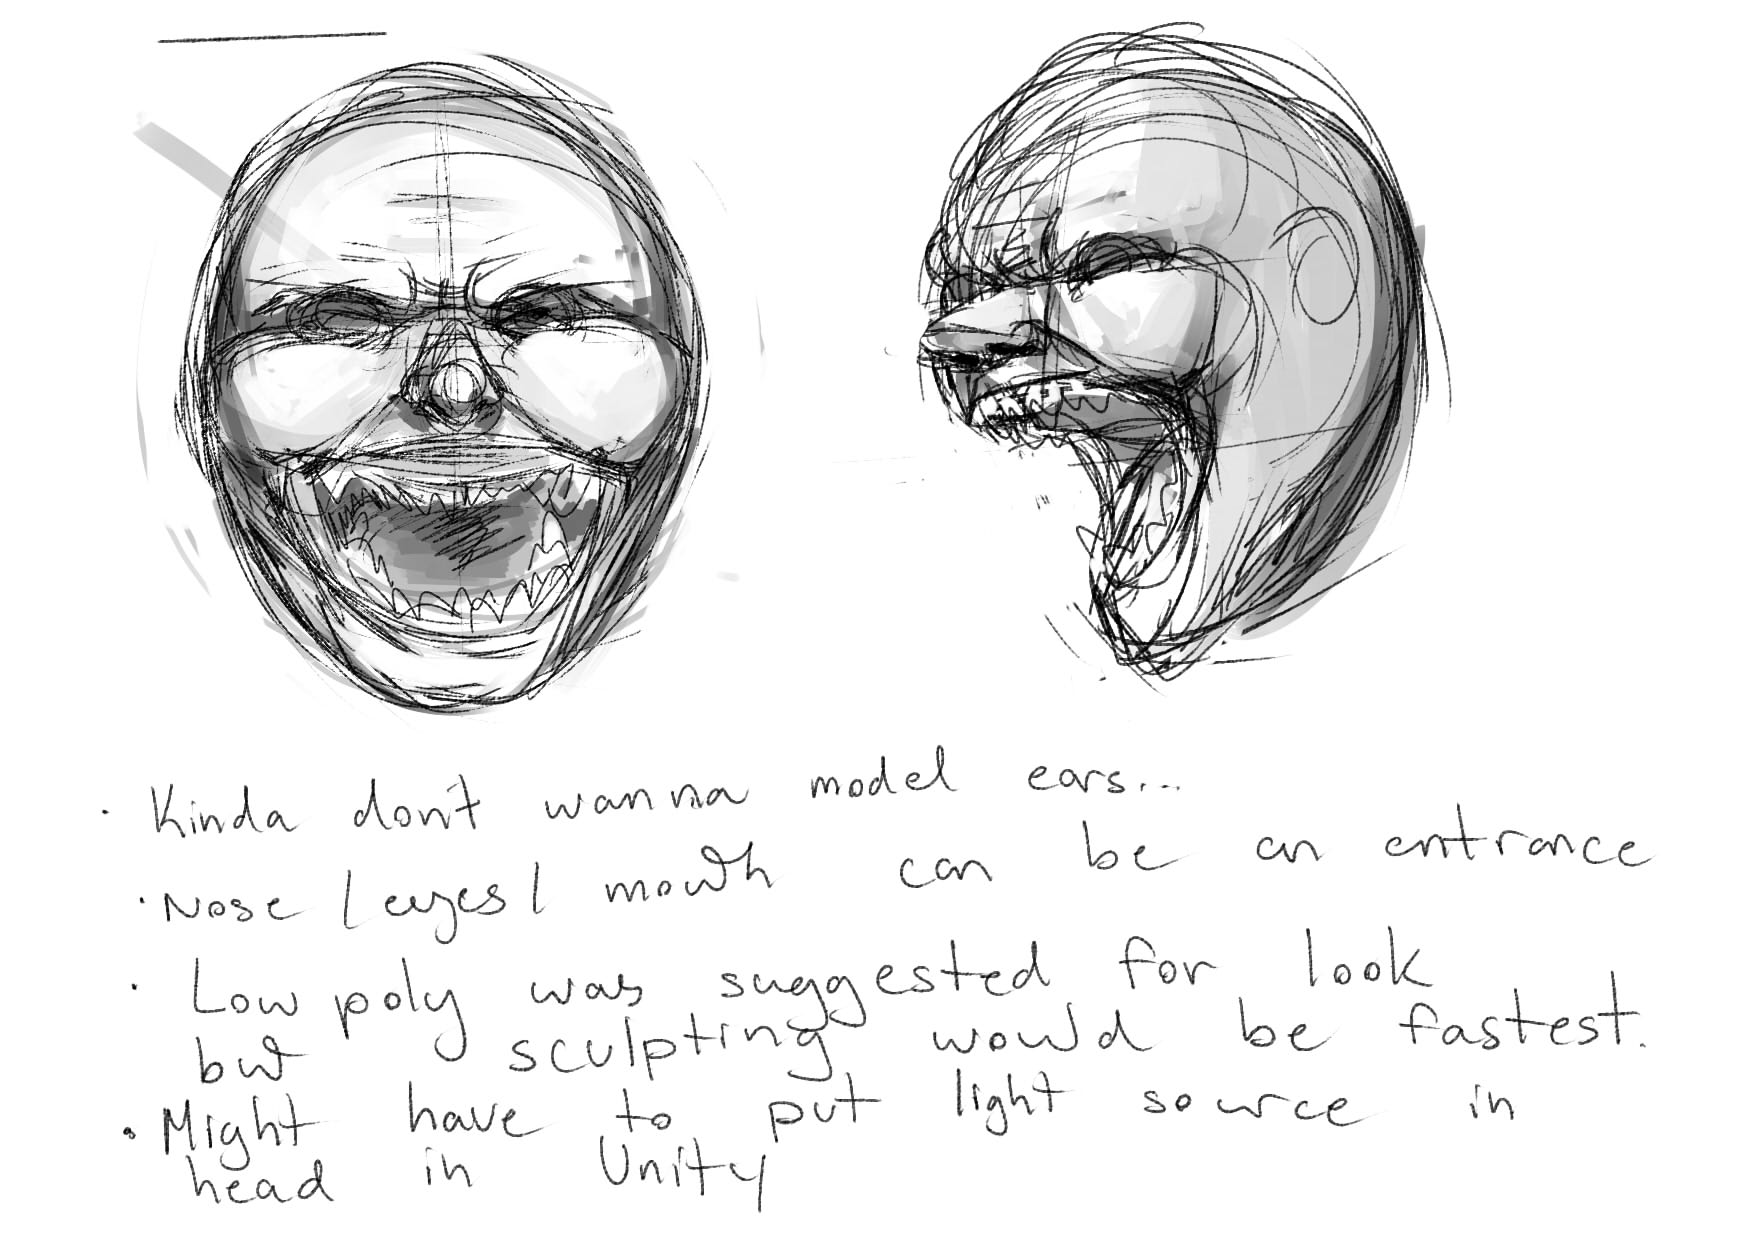 · Kinda don't wanna model ears...
· Nose / eyes / mouth can be an entrance
· Low poly was suggested for look
but sculpting would be fastest.
· Might have to put light source in
head in Unity